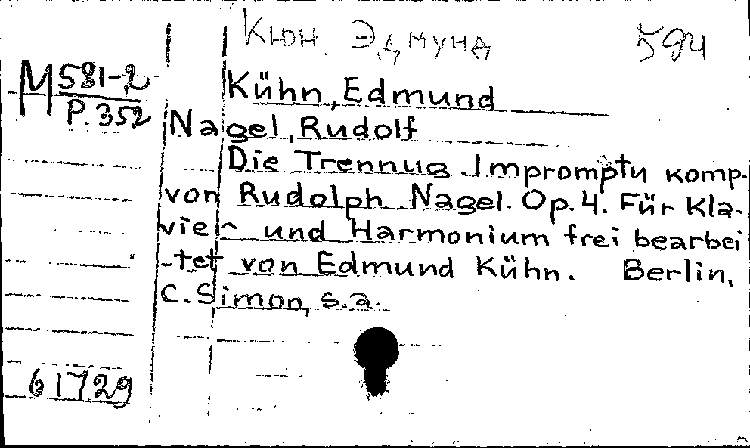 Кюн, Эдмунд 594
М 581-2
P. 352
Kühn, Edmund
Nagel, Rudolf
Die Trennug Impromptu komp.
von Rudolph Nagel. Op. 4. Für Kla-
vier und Harmonium frei bearbei
-tet von Edmund Kühn. Berlin,
C. Simon, s.a.
61729